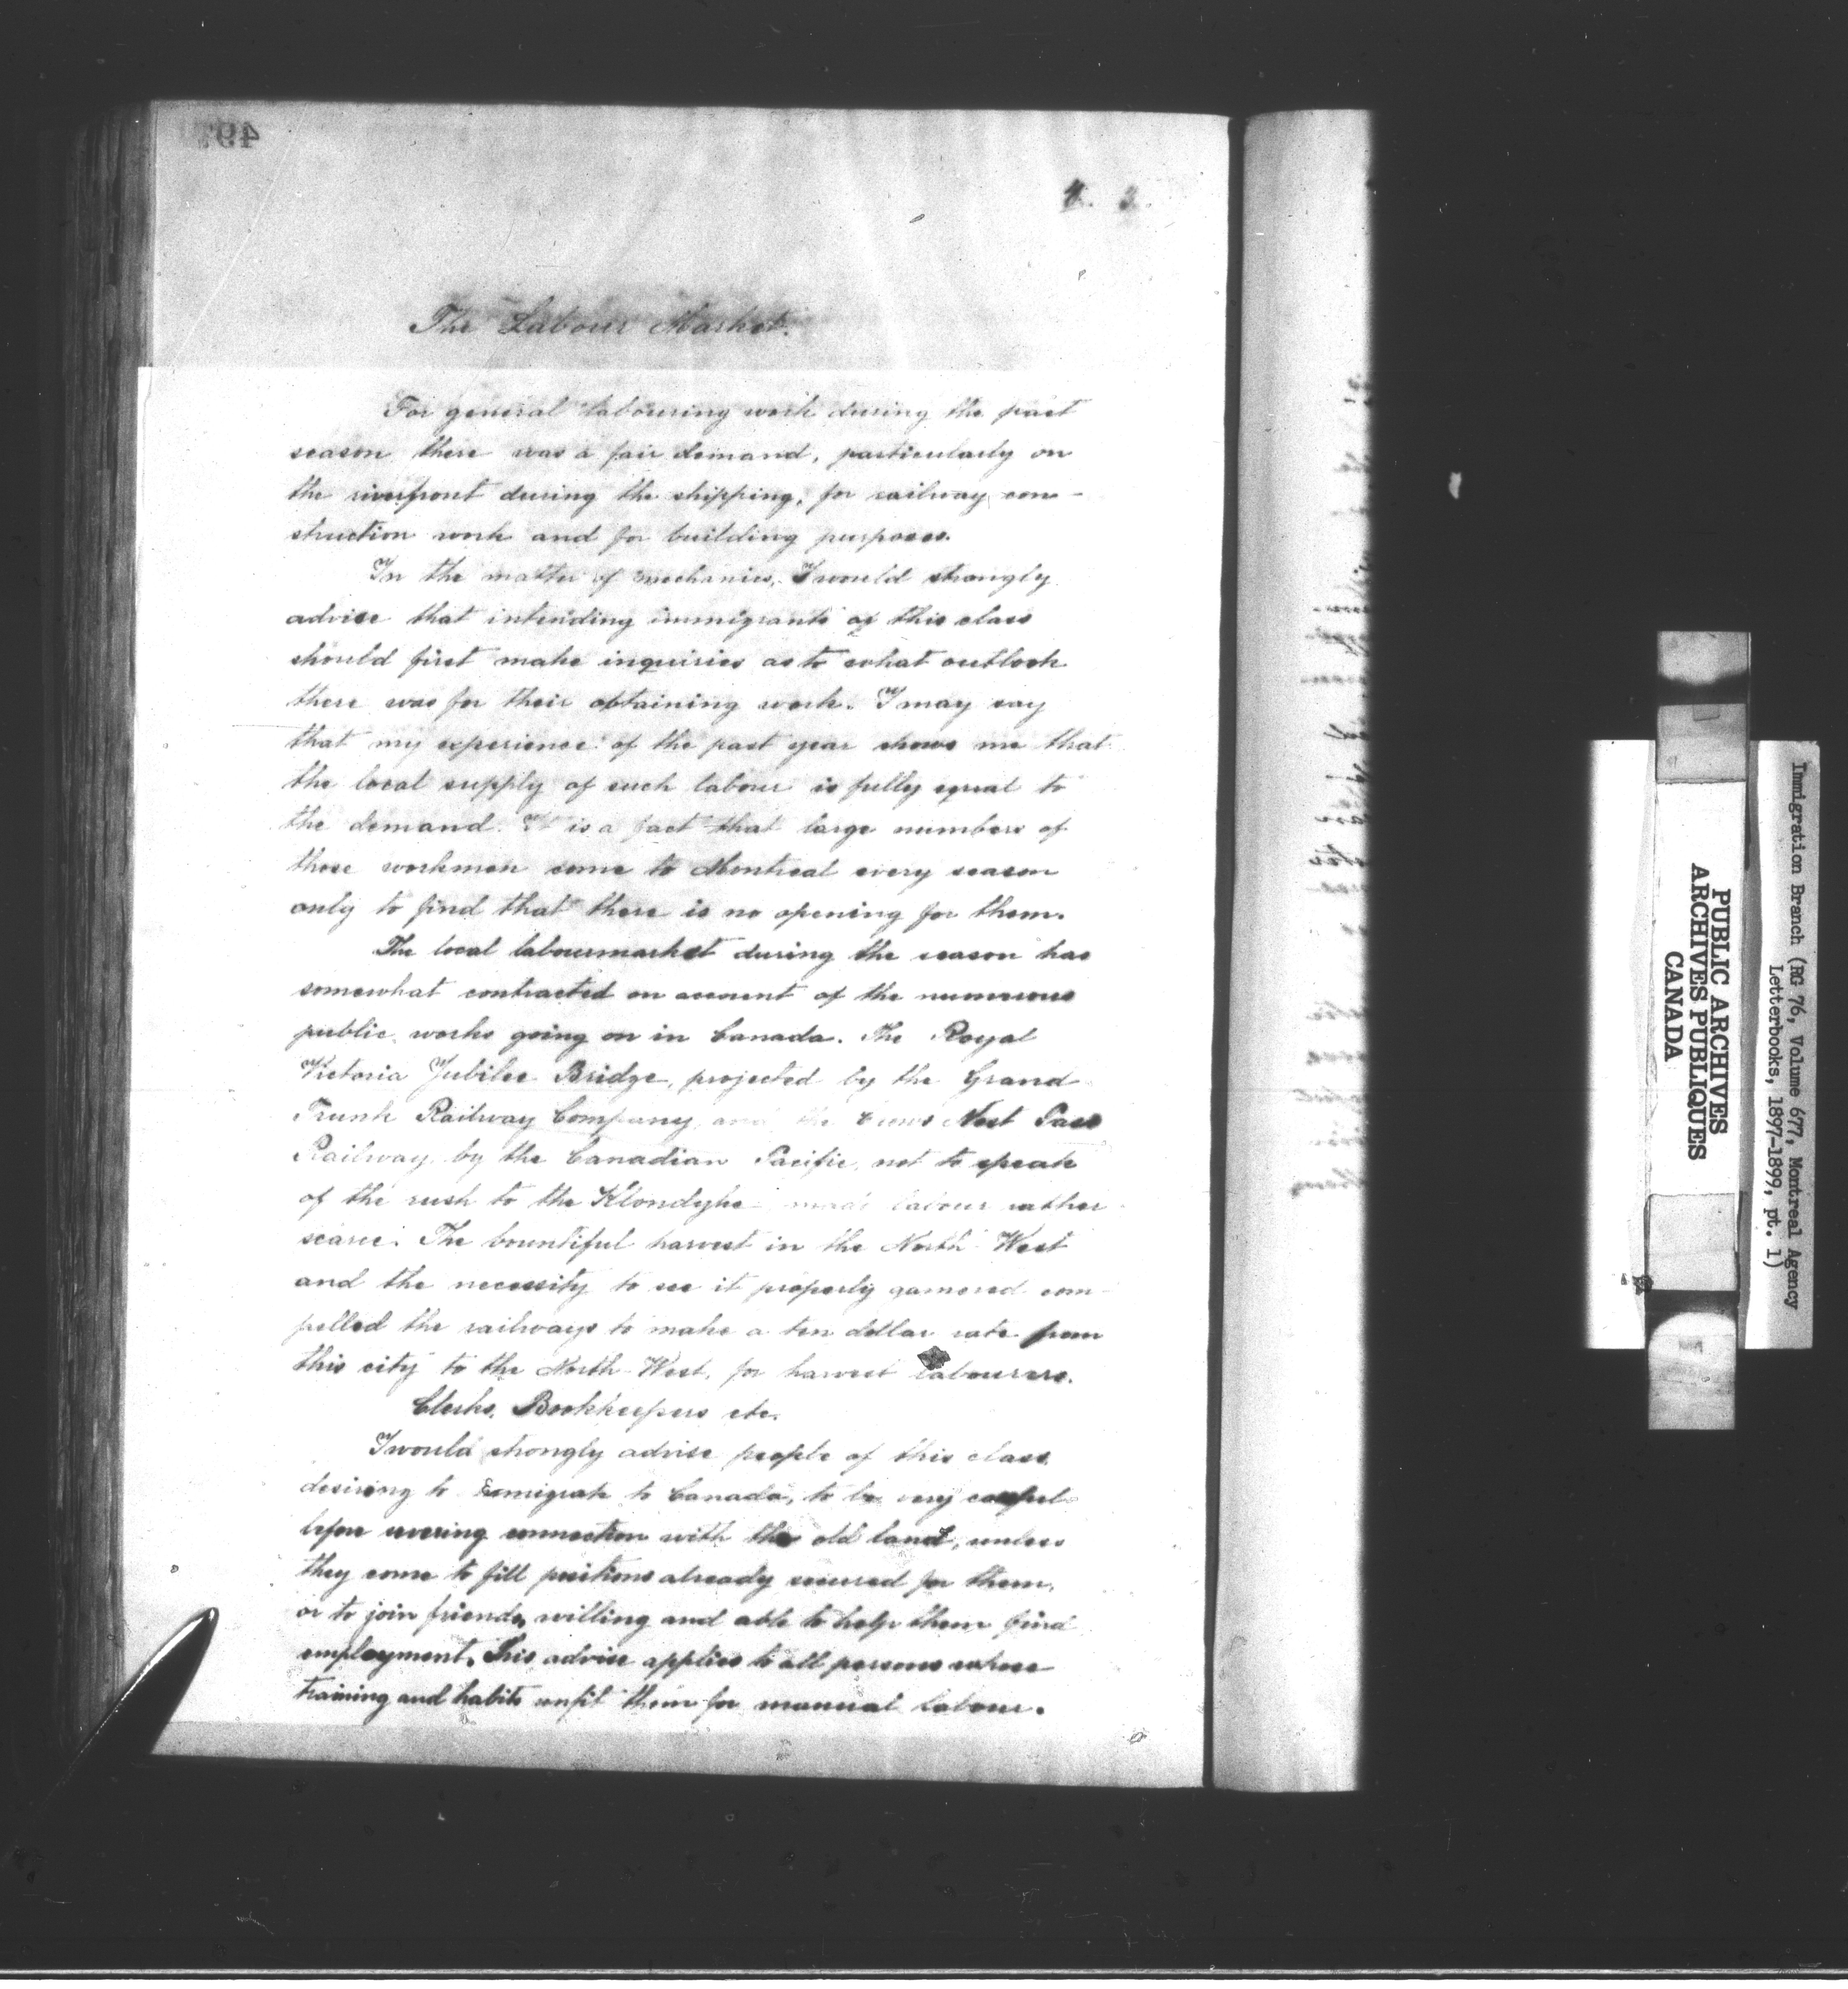 The Labour Market.
For general labouring work during the past
season there was a fair demand, particularly on
the riverfront during the shipping, for railway con-
struction work and for building purposes.
In the matter of mechanics, I would strongly
advise that intending immigrants of this class
should first make inquiries as to what outlook
there was for their obtaining work. I may say
that my experience of the past year shows me that
the local supply of such labour is fully equal to
the demand. It is a fact that large numbers of
those workmen come to Montreal every season
only to find that there is no opening for them.
The local labourmarket during the season has
somewhat contracted on account of the numerous
public works going on in Canada. The Royal
Victoria Jubilee Bridge, projected by the Grand
Trunk Railway Company and the Crows Nest Pass
Railway by the Canadian Pacific, not to speak
of the rush to the Klondyke made labour rather
scarce. The bountiful harvest in the North West
and the necessity to see it properly garnered com-
pelled the railways to make a ten dollar rate from
this city to the North-West, for harvest labourers.
Clerks, Bookkeepers etc.
I would strongly advise people of this class
desiring to Emigrate to Canada, to be very careful
before severing connection with the old land, unless
they come to fill positions already secured for them,
or to join friends, willing and able to help them find
employment. This advise applies to all persons whose
training and habits unfit them for manual labour.
PUBLIC ARCHIVES
ARCHIVES PUBLIQUES
CANADA
Immigration Branch (RG 76, Volume 677, Montreal Agency
Letterbooks, 1897-1899, pt. 1)